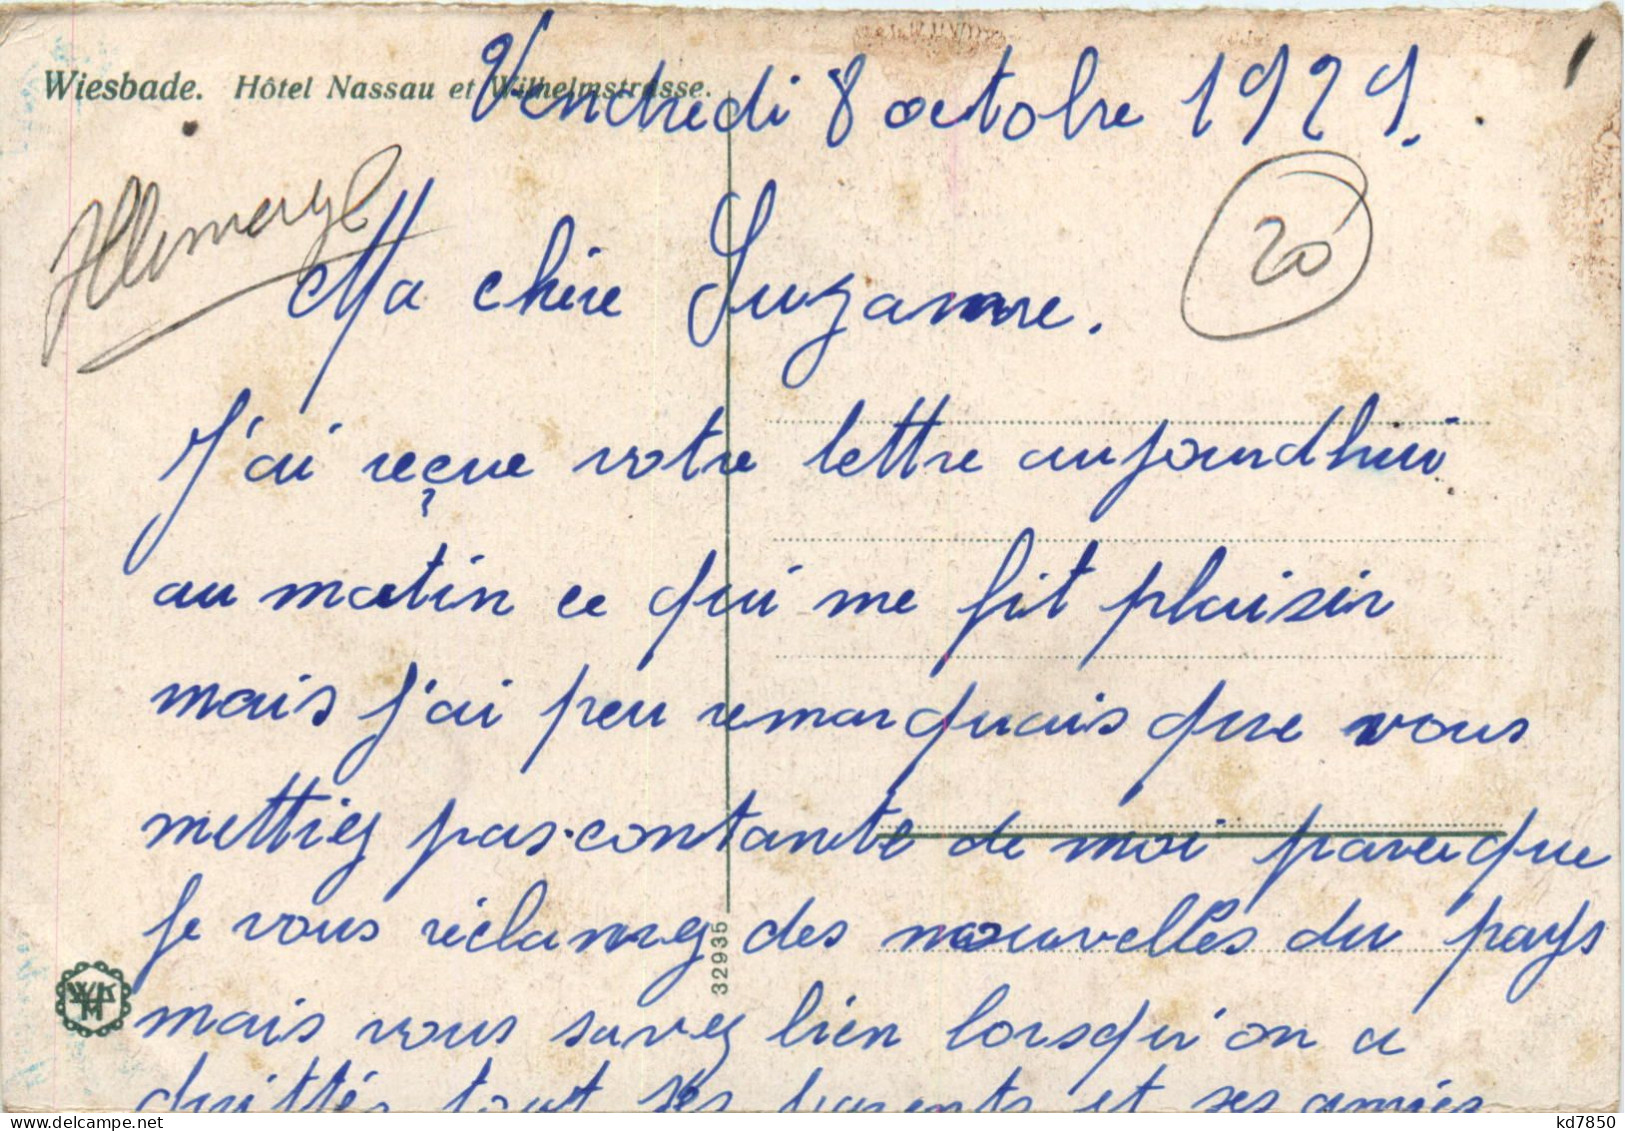 Wiesbade. Hôtel Nassau et Wilhelmstrasse.
Vendredi 8 octobre 1929.
Allemagne
20
Ma chère Suzanne.
J'ai reçue votre lettre aujourdhui
au matin ce qui me fit plaisir
mais j'ai peu remarquais que vous
mettiez pas contante de moi parceque
je vous réclamez des nouvelles du pays
mais vous savez bien lorsqu'on a
quittés tout ses parents et ses amies
32935
kd7850